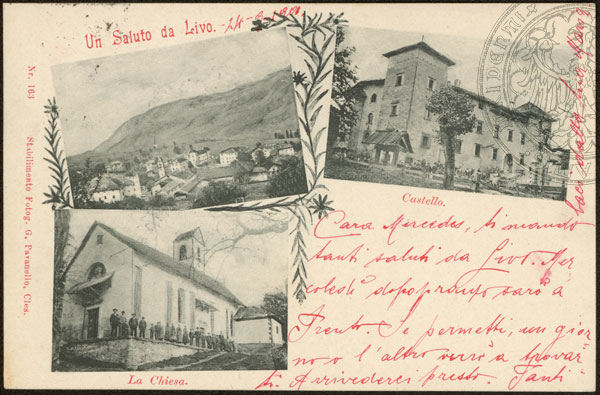 Un Saluto da Livo.
Nr. 163
Stabilimento Fotog. G. Pavanello, Cles.
Castello.
La Chiesa.
Cara Mercedes, ti mando
tanti saluti da Livo. Mer-
coledì dopopranzo sarò a
Trento. Se permetti, un gior-
no o l'altro verrò a trovar-
ti. Arrivederci presto. Tanti
baci